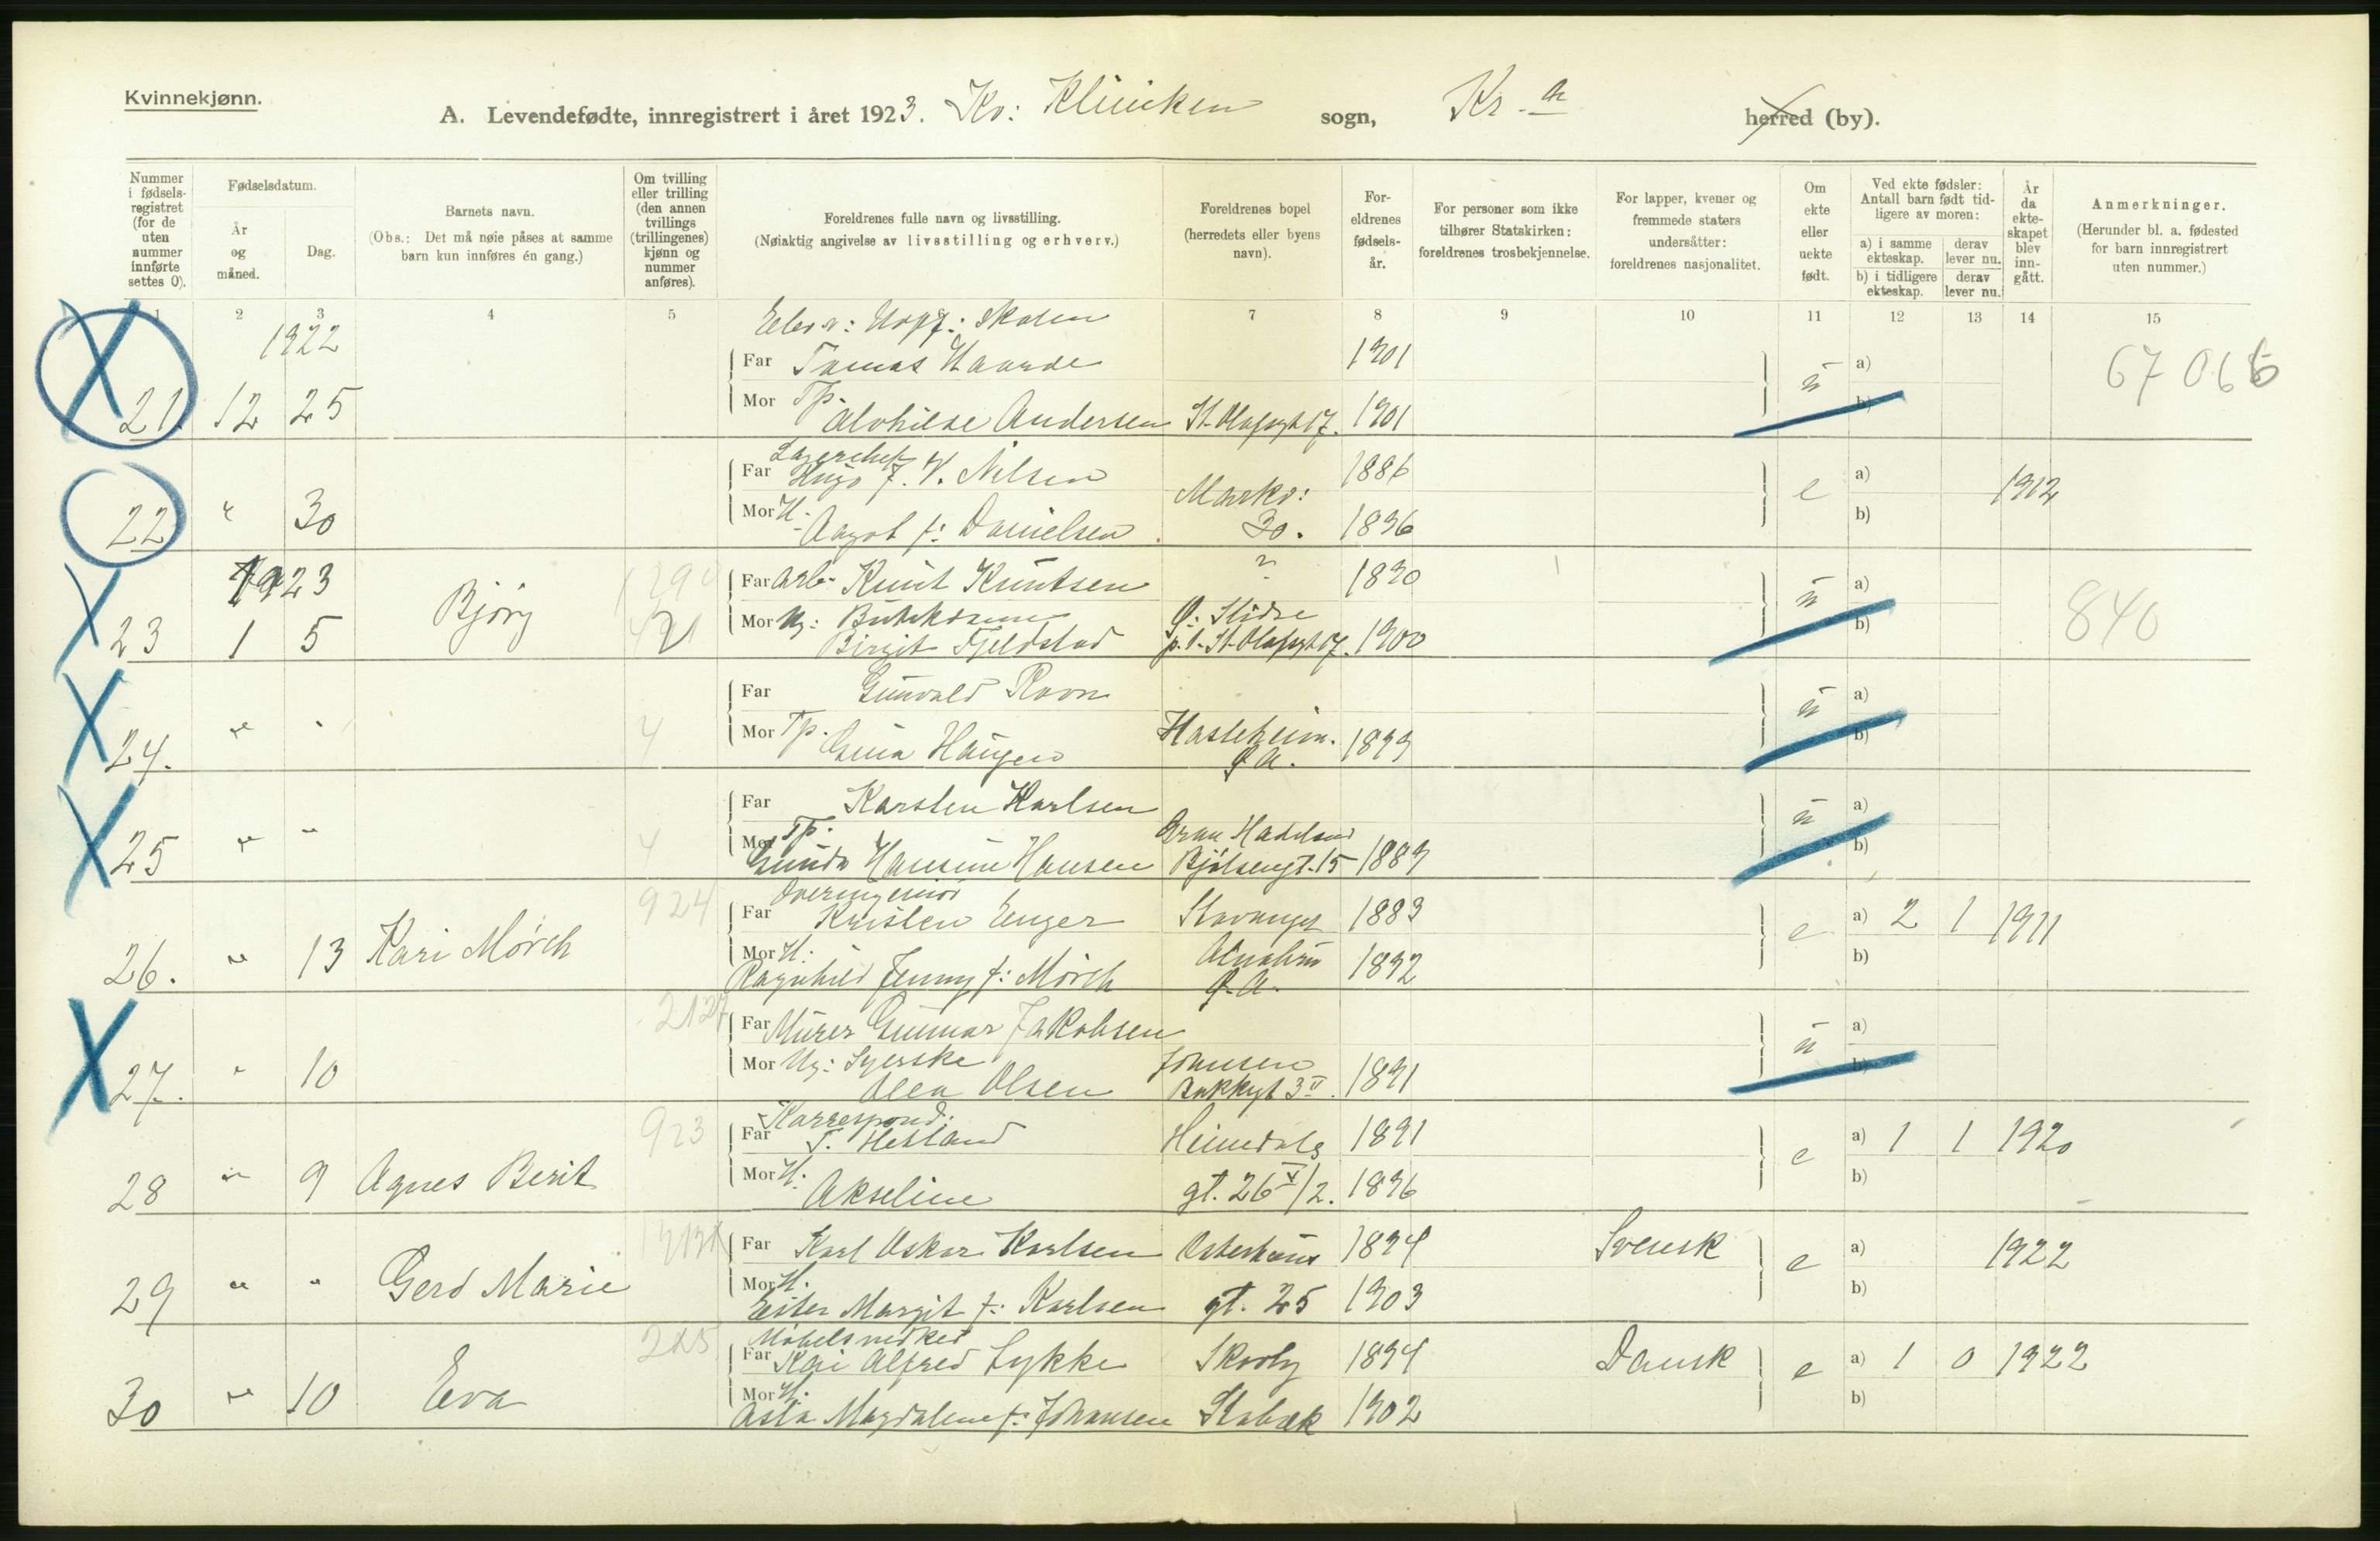 Kvinnekjønn.
A. Levendefødte, innregistrert i året 1923. Kv: Kliniken sogn, Kr-a herred (by).
Nummer i fødselsregistret (for de uten nummer innførte settes 0).
Fødselsdatum.
År og måned.
Dag.
Barnets navn.
(Obs.: Det må nøie påses at samme barn kun innføres én gang.)
Om tvilling eller trilling (den annen tvillings (trillingenes) kjønn og nummer anføres).
Foreldrenes fulle navn og livsstilling.
(Nøiaktig angivelse av livsstilling og erhverv.)
Foreldrenes bopel (herredets eller byens navn).
Foreldrenes fødselsår.
For personer som ikke tilhører Statskirken: foreldrenes trosbekjennelse.
For lapper, kvener og fremmede staters undersåtter: foreldrenes nasjonalitet.
Om ekte eller uekte født.
Ved ekte fødsler: Antall barn født tidligere av moren:
a) i samme ekteskap. derav lever nu.
b) i tidligere ekteskap. derav lever nu.
År da ekteskapet blev inngått.
Anmerkninger.
(Herunder bl. a. fødested for barn innregistrert uten nummer.)
1 2 3 4 5 7 8 9 10 11 12 13 14 15
1922
Far Tomas Haarde 1901 a) 67066
21. 12 25 Mor Tp. Alvhilde Andersen St. Olafsgt 17. 1901 ü b)
Lagerchef
Far Hugo F. V. Nilsen 1886 a)
22 " 30 Mor H. Aagot f: Danielsen. Markv: 30. 1896 e b) 1912
1923
Far Arb. Knut Knutsen ? 1890 a)
23 1 5 Bjørg Mor Ug: Birgit Fjeldstad Ø: Slidre p.t. St. Olafsgt 17. 1900 ü b) 840
Far Gunvald Ravn a)
24. " " 4 Mor Tp. Haugen Hasleheim. Ø A. 1899 ü b)
Far Karsten Karlsen a)
25 " " 4 Mor Tp. Gunda Hansine Hansen Gran Hadeland Bjölsengt. 15 1889 ü b)
924
Overingeniör
Far Kristen Enger Stavanger 1883 a) 2 1 1911
26. " 13 Kari Mørch Mor H: Ragnhild Jenny f: Mörch Alnabru Ø. A. 1892 e b)
2127
Far Murer Gunnar Jakobsen a)
27. " 10 Mor Ug: Syerske Olea Olsen 3 II. 1891 ü b)
923
Korrespond.
Far T. Hetland Heimdals 1891 a) 1 1 1920
28 " 9 Agnes Berit Mor H. Akseline gt. 26 V/2. 1896 e b)
Far Karl Oskar Karlsen Osterhaus 1894 Svensk a) 1922
29 " " Gerd Marie Mor H. Ester Margit f: Karlsen gt. 25 1903 e b)
Möbelsnedker
Far Kai Alfred Lykke Skovly 1894 Dansk a) 1 0 1922
30 " 10 Eva Mor H. Asta Magdalene f: Johansen Stabæk 1902 e b)